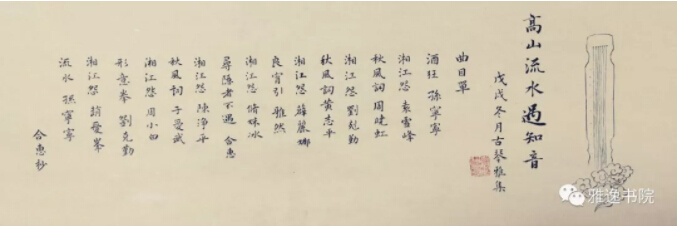 高山流水遇知音
戊戌冬月古琴雅集
曲目單
酒狂 孫寧寧
湘江怨 袁雪峰
秋風詞 周曉虹
湘江怨 劉克勤
秋風詞 黃志平
湘江怨 薛麗娜
良宵引 雅然
湘江怨 脩妹冰
尋隱者不遇 合惠
湘江怨 陳淨平
秋風詞 于愛斌
湘江怨 周小白
形意拳 劉克勤
湘江怨 趙愛峯
流水 孫寧寧
合惠抄
雅逸书院